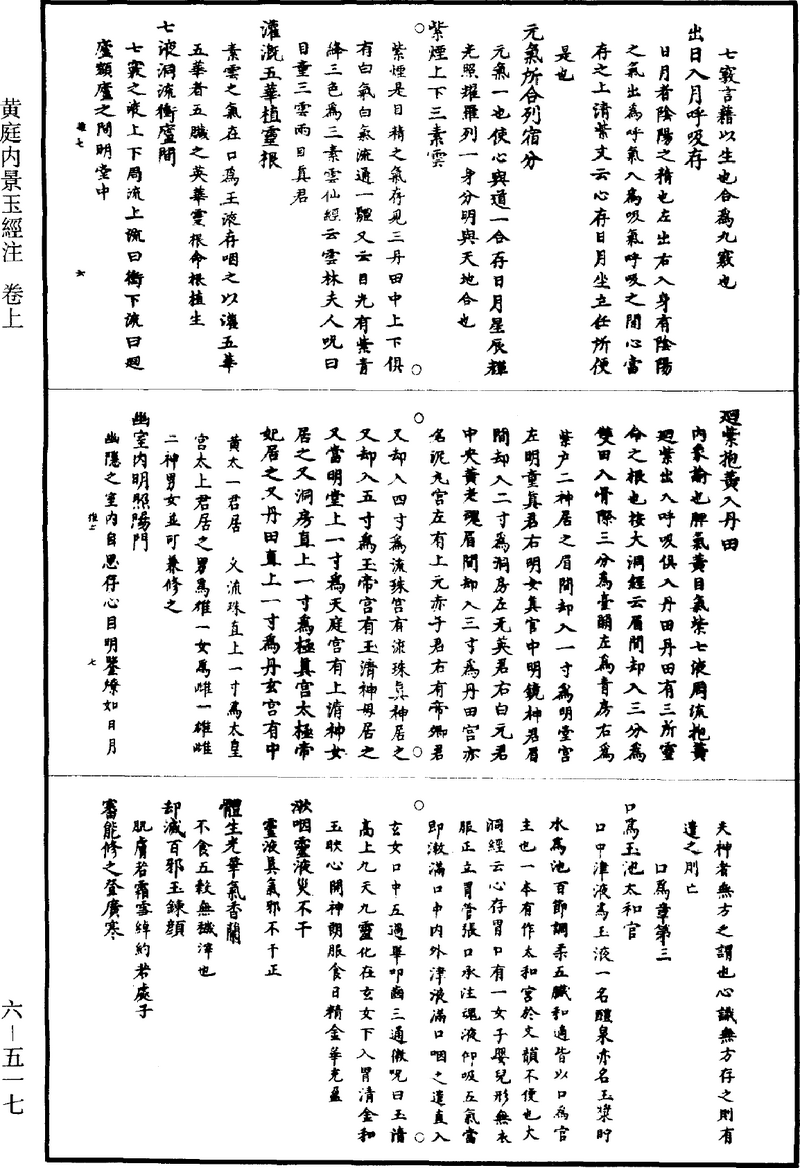 黄庭内景玉經注　卷上
六—五一七
七竅言藉以生也合爲九竅也
出日入月呼吸存
日月者陰陽之精也左出右入身有陰陽
之氣出爲呼氣入爲吸氣呼吸之間心當
存之上清紫文云心存日月坐立任所便
是也
元氣所合列宿分
元氣一也使心與道一合存日月星辰輝
光照耀羅列一身分明與天地合也
紫煙上下三素雲
紫煙是目精之氣存見三丹田中上下俱
有白氣白氣流通一體又云目光有紫青
絳三色爲三素雲仙經云雲林夫人呪曰
目童三雲兩目眞君
灌溉五華植靈根
素雲之氣在口爲玉液存咽之以灌五華
五華者五臟之英華靈根命根植生
七液洞流衝廬間
七竅之液上下周流上流曰衝下流曰廻
廬頞廬之間明堂中
廻紫抱黄入丹田
内象諭也脾氣黄目氣紫七液周流抱黄
廻紫出入呼吸俱入丹田丹田有三所靈
命之根也按大洞經云眉間却入三分爲
雙田入骨際三分爲臺闕左爲青房右爲
紫户二神居之眉間却入一寸爲明堂宫
左明童眞君右明女眞官中明鏡神君眉
間却入二寸爲洞房左无英君右白元君
中央黄老魂眉間却入三寸爲丹田宫亦
名泥丸宫左有上元赤子君右有帝卿君
又却入四寸爲流珠宫有流珠眞神居之
又却入五寸爲玉帝宫有玉清神母居之
又當明堂上一寸爲天庭宫有上清神女
居之又洞房直上一寸爲極眞宫太極帝
妃居之又丹田直上一寸爲丹玄宫有中
黄太一君居　又流珠直上一寸爲太皇
宫太上君居之男爲雄一女爲雌一雄雌
二神男女並可兼修之
幽室内明照陽門
幽隱之室内自思存心目明鑒燎如日月
夫神者無方之謂也心識無方存之則有
遺之則亡
口爲章第三
口爲玉池太和官
口中津液爲玉液一名醴泉亦名玉漿貯
水爲池百節調柔五臟和適皆以口爲官
主也一本有作太和宫於文韻不便也大
洞經云心存胃口有一女子嬰兒形無衣
服正立胃管張口承注魂液仰吸五氣當
即漱滿口中内外津液滿口咽之遣直入
玄女口中五過畢叩齒三通微呪曰玉清
高上九天九靈化在玄女下入胃清金和
玉映心開神朗服食日精金華充盈
漱咽靈液災不干
靈液眞氣邪不干正
體生光華氣香蘭
不食五穀無穢滓也
却滅百邪玉鍊顔
肌膚若霜雪綽約若處子
審能修之登廣寒